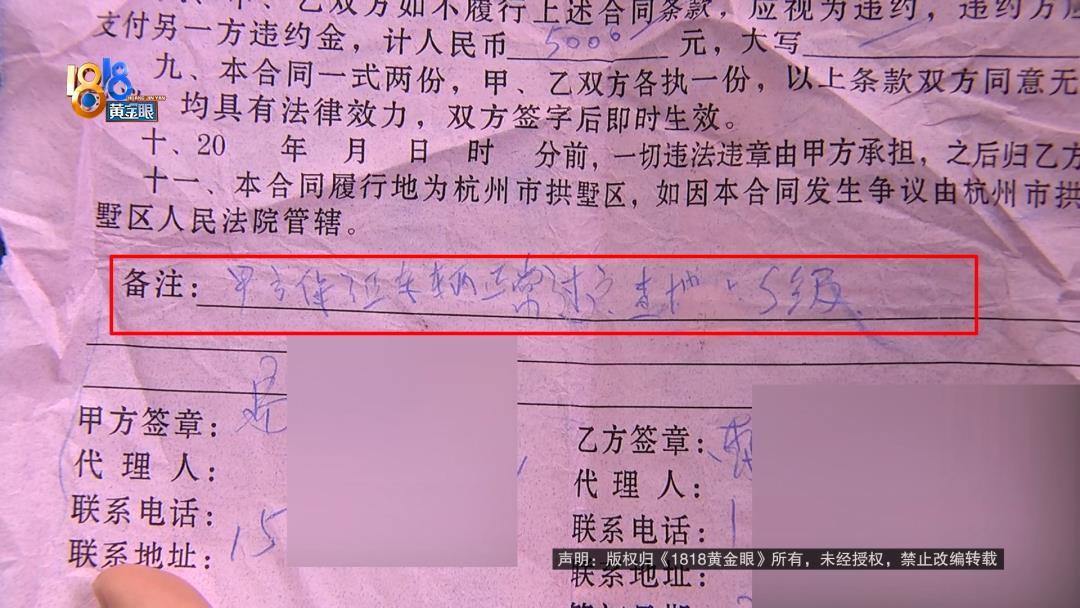 甲、乙双方如不履行上述合同条款，应视为违约，违约方应
支付另一方违约金，计人民币 5000 元，大写
九、本合同一式两份，甲、乙双方各执一份，以上条款双方同意无
均具有法律效力，双方签字后即时生效。
十、20 年 月 日 时 分前，一切违法违章由甲方承担，之后归乙方
十一、本合同履行地为杭州市拱墅区，如因本合同发生争议由杭州市拱
墅区人民法院管辖。
备注：甲方保证车辆正常过户
甲方签章：
代理人：
联系电话：15
联系地址：
乙方签章：
代理人：
联系电话：1
联系地址：
1818
HUANG JIN YAN
黄金眼
声明：版权归《1818黄金眼》所有，未经授权，禁止改编转载